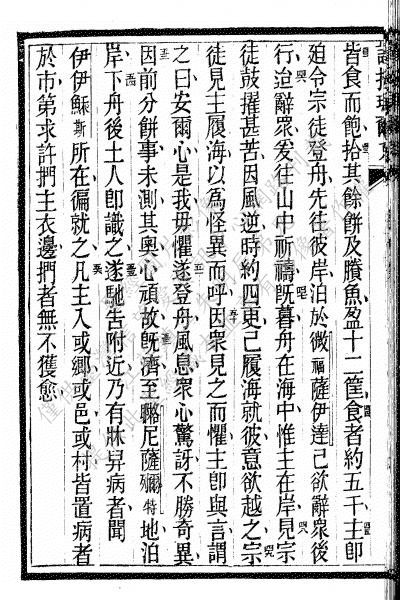 皆食而飽拾其餘餅及賸魚盈十二筐食者約五千主卽
廹令宗徒登舟先往彼岸泊於微福薩伊達己欲辭衆後
行迨辭衆爰往山中祈禱旣暮舟在海中惟主在岸見宗
徒鼓擢甚苦因風逆時約四更己履海就彼意欲越之宗
徒見主履海以爲怪異而呼因衆見之而懼主卽與言謂
之曰安爾心是我毋懼遂登舟風息衆心驚訝不勝奇異
因前分餅事未測其奧心頑故旣濟至
尼薩
特地泊
岸下舟後土人卽識之遂馳吿附近乃有牀舁病者聞
伊伊穌斯所在徧就之凡主入或鄉或邑或村皆置病者
於市第求許捫主衣邊捫者無不獲愈